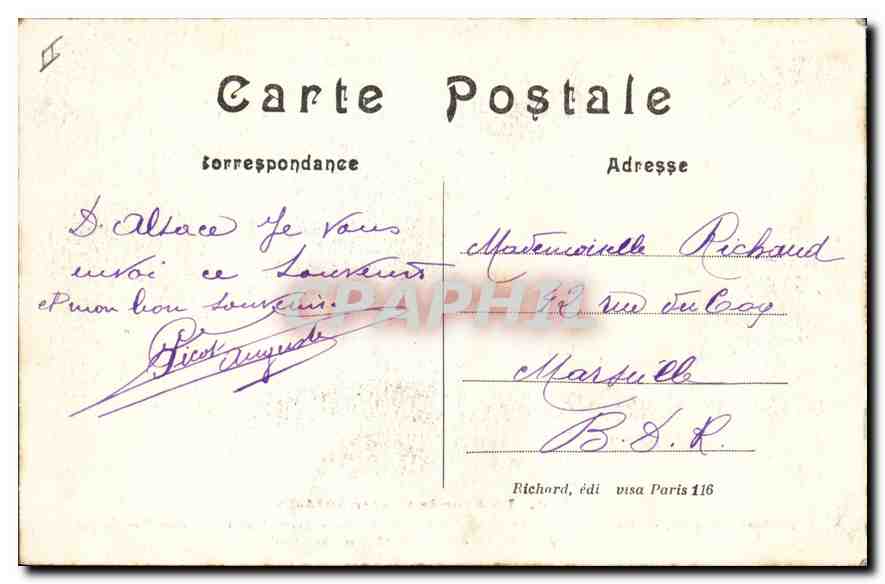 Carte Postale
Correspondance
Adresse
D. Alsace Je vous
envoi ce souvenir
et mon bon souvenir.
Picot Auguste
Mademoiselle Richaud
42 rue du Coq
Marseille
B. D. R.
Richard, édi visa Paris 116
CPAPHIL